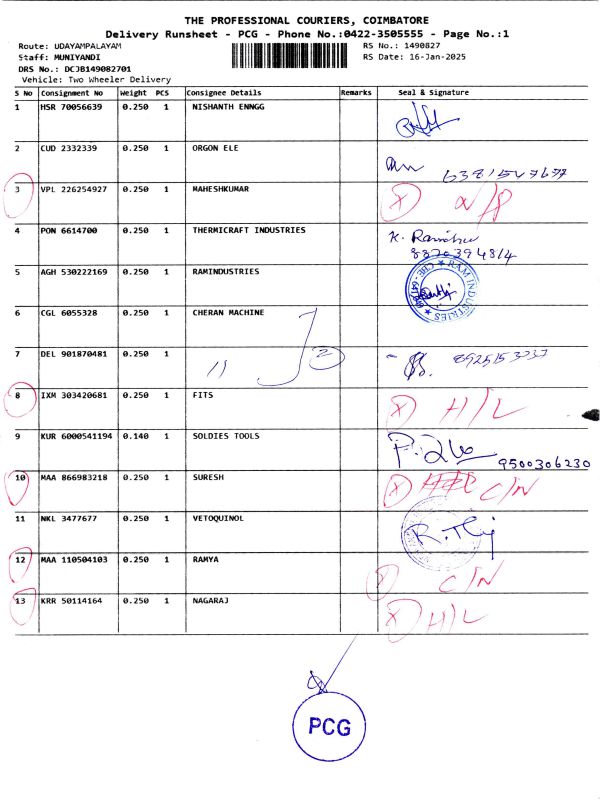 THE PROFESSIONAL COURIERS, COIMBATORE
Delivery Runsheet - PCG - Phone No.:0422-3505555 - Page No.:1
Route: UDAYAMPALAYAM
RS No.: 1490827
Staff: MUNIYANDI
RS Date: 16-Jan-2025
DRS No.: DCJB149082701
Vehicle: Two Wheeler Delivery
S No Consignment No Weight PCS Consignee Details Remarks Seal & Signature
1 HSR 70056639 0.250 1 NISHANTH ENNGG
2 CUD 2332339 0.250 1 ORGON ELE
3 VPL 226254927 0.250 1 MAHESHKUMAR X
4 PON 6614700 0.250 1 THERMICRAFT INDUSTRIES
8870394814
5 AGH 530222169 0.250 1 RAMINDUSTRIES RAM INDUSTRIES
6 CGL 6055328 0.250 1 CHERAN MACHINE
7 DEL 901870481 0.250 1 11 2
8 IXM 303420681 0.250 1 FITS X H/L
9 KUR 6000541194 0.140 1 SOLDIES TOOLS
9500306230
10 MAA 866983218 0.250 1 SURESH X C/N
11 NKL 3477677 0.250 1 VETOQUINOL
12 MAA 110504103 0.250 1 RAMYA X C/N
13 KRR 50114164 0.250 1 NAGARAJ X H/L
PCG